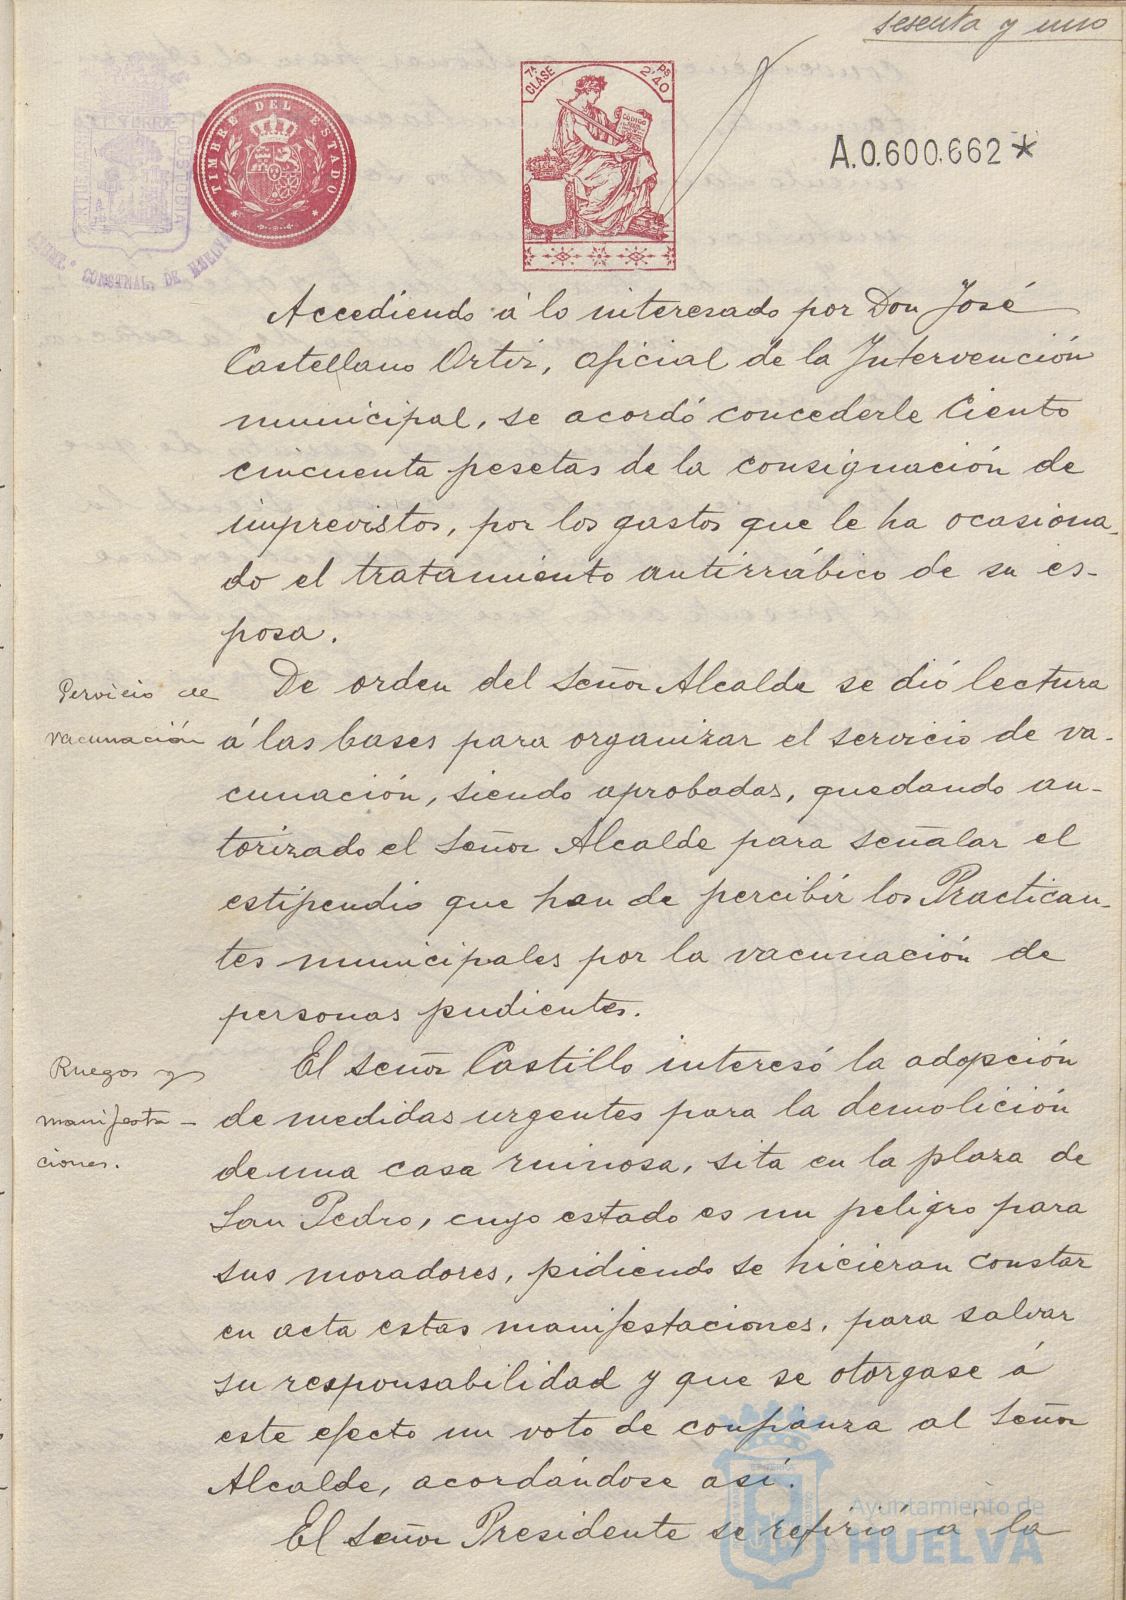 sesenta y uno
TIMBRE DEL ESTADO
7ª CLASE
Ps 2'40
CODIGO
A.0.600.662*
CONSTNAL. DE HUELVA
Accediendo á lo interesado por Don José
Castellano Ortiz, oficial de la Intervención
municipal, se acordó concederle Ciento
cincuenta pesetas de la consignación de
imprevistos, por los gastos que le ha ocasiona-
do el tratamiento antirrábico de su es-
posa.
Servicio de
vacunación
De orden del Señor Alcalde se dió lectura
á las bases para organizar el servicio de va-
cunación, siendo aprobadas, quedando au-
torizado el Señor Alcalde para señalar el
estipendio que han de percibir los Practican-
tes municipales por la vacunación de
personas pudientes.
Ruegos y
manifesta-
ciones.
El señor Castillo interesó la adopción
de medidas urgentes para la demolición
de una casa ruinosa, sita en la plaza de
San Pedro, cuyo estado es un peligro para
sus moradores, pidiendo se hicieran constar
en acta estas manifestaciones, para salvar
su responsabilidad y que se otorgase á
este efecto un voto de confianza al Señor
Alcalde, acordándose así.
El Señor Presidente se refirió á la
Ayuntamiento de
HUELVA